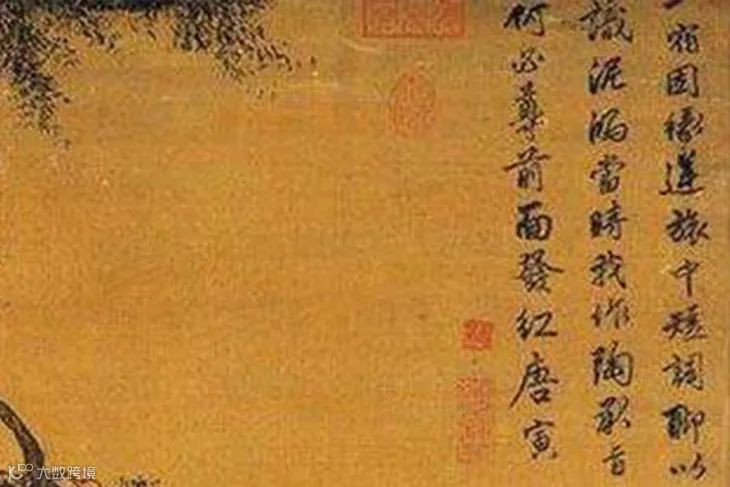 一宿因緣逆旅中短詞聊以
識泥鴻當時我作陶承旨
何必尊前面發紅唐寅
大数跨境